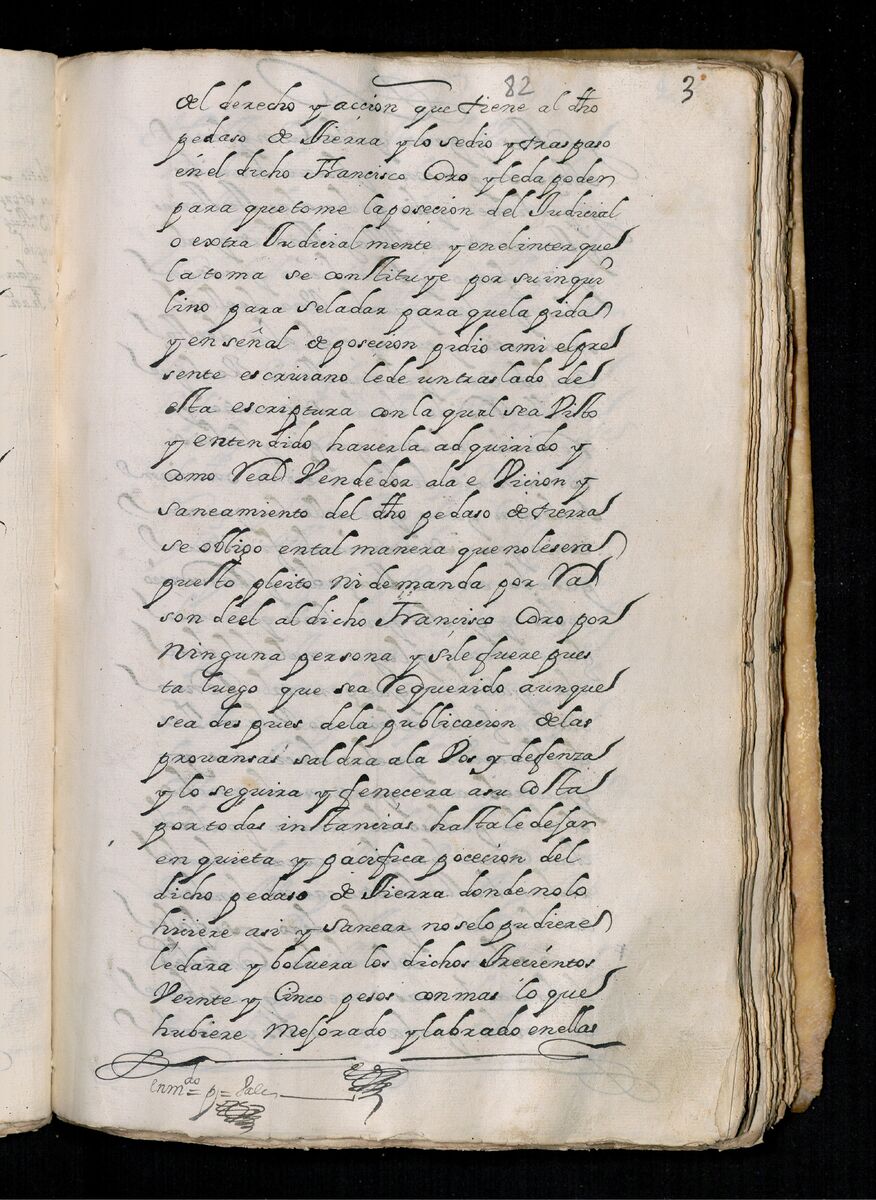 82
3
del derecho y accion que tiene al dho
pedaso de Tierra y lo sedio y traspaso
en el dicho Francisco Coro y le da poder
para que tome la posecion del Judicial
o extra Judicialmente y en el inter que
la toma se constituye por su inqui
lino para seladar para que la pida
y en señal de posecion pidio a mi el pre
sente escrivano le de un traslado de
esta escriptura con la qual sea Visto
y entendido haverla adquirido y
como Real Vendedor a la e Vicion y
saneamiento del dho pedaso de tierra
se obligo en tal manera que no le sera
puesto pleito ni demanda por Ra
son de el al dicho Francisco Coro por
Ninguna persona y si le fuere pues
ta luego que sea Requerido aunque
sea despues de la publicacion de las
provansas saldra a la Vos y defenza
y lo seguira y fenecera a su costa
por todas instancias hasta le dejar
en quieta y pacifica pocecion del
dicho pedaso de Tierra donde no lo
hiciere asi y sanear no se lo pudiere
le dara y bolvera los dichos Trecientos
Veinte y Cinco pesos con mas lo que
hubiere Mejorado y labrado en ellas
enmdo = p = Vale